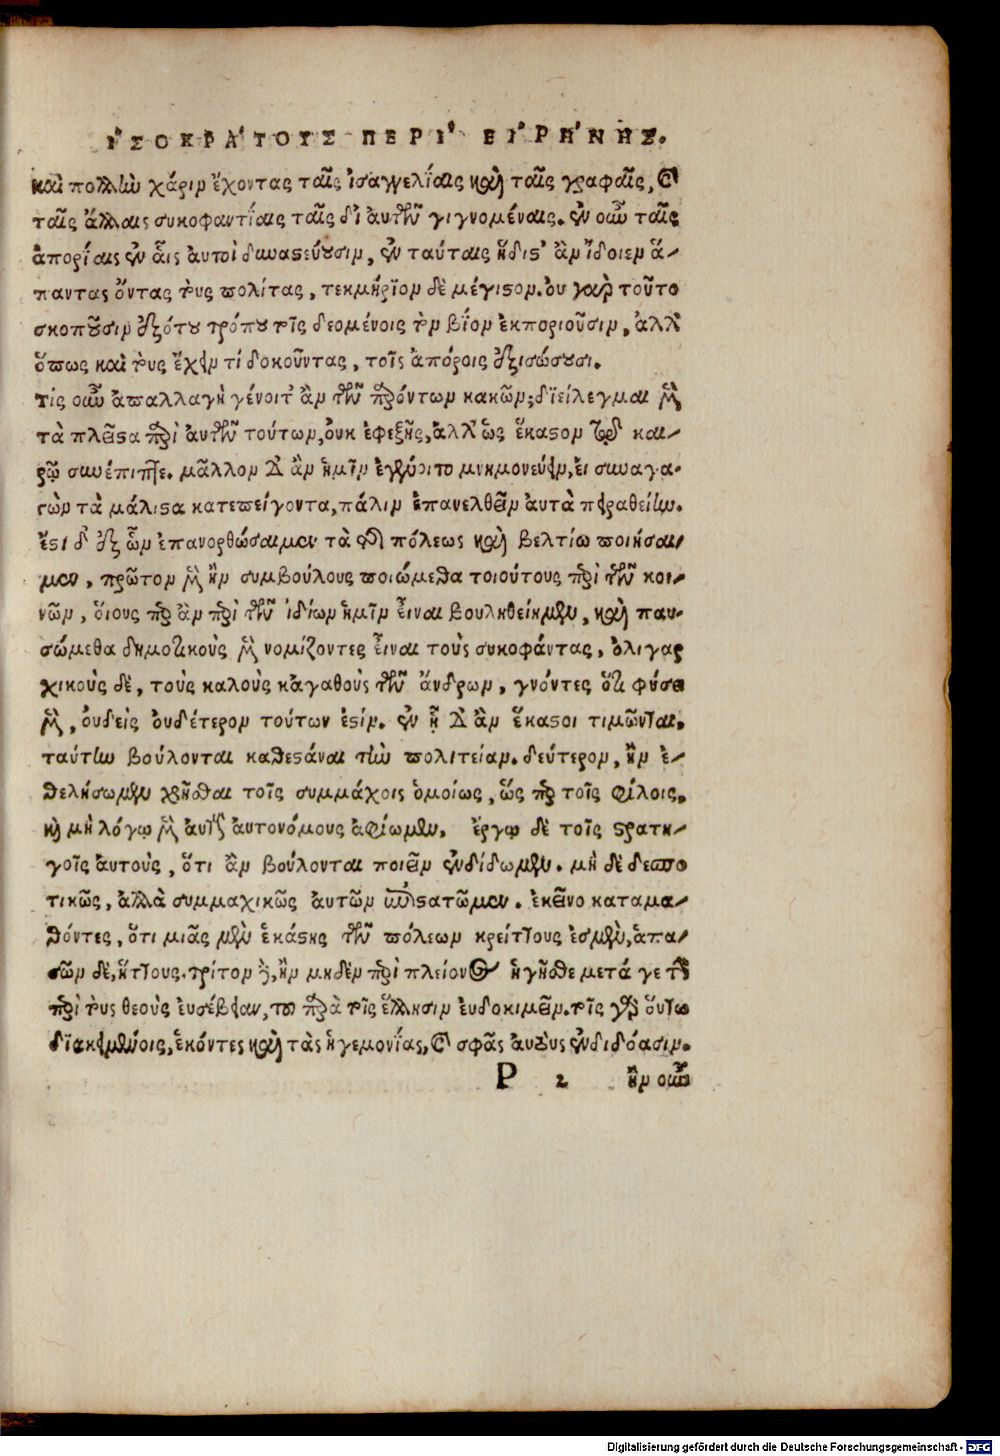 ἸΣΟΚΡΆΤΟΥΣ ΠΕΡῚ ΕἸΡΉΝΗΣ.
καὶ πολλὴν χάριν ἔχοντας ταῖς ἰσαγγελίαις καὶ ταῖς γραφαῖς, καὶ
ταῖς ἄλλαις συκοφαντίαις ταῖς δι' αὐτῶν γιγνομέναις. ἐν οὖν ταῖς
ἀπορίαις ἐν αἷς αὐτοὶ δυναστεύουσιν, ἐν ταύταις ἥδιστ' ἂν ἴδοιεν ἅ-
παντας ὄντας τοὺς πολίτας, τεκμήριον δὲ μέγιστον. οὐ γὰρ τοῦτο
σκοποῦσιν ἐξ ὅτου τρόπου τοῖς δεομένοις τὸν βίον ἐκποριοῦσιν, ἀλλ'
ὅπως καὶ τοὺς ἔχειν τὶ δοκοῦντας, τοῖς ἀπόροις ἐξισώσουσι.
τίς οὖν ἀπαλλαγὴ γένοιτ' ἂν τῶν παρόντων κακῶν; διείλεγμαι μὲν
τὰ πλεῖστα περὶ αὐτῶν τούτων, οὐκ ἐφεξῆς, ἀλλ' ὡς ἕκαστον τῷ και-
ρῷ συνέπιπτε. μᾶλλον δ' ἂν ἡμῖν ἐγγένοιτο μνημονεύειν, εἰ συναγα-
γὼν τὰ μάλιστα κατεπείγοντα, πάλιν ἐπανελθεῖν αὐτὰ πειραθείην.
ἔστι δ' ἐξ ὧν ἐπανορθώσαιμεν τὰ τῆς πόλεως καὶ βελτίω ποιήσαι-
μεν, πρῶτον μὲν ἢν συμβούλους ποιώμεθα τοιούτους περὶ τῶν κοι-
νῶν, οἵους περ ἂν περὶ τῶν ἰδίων ἡμῖν εἶναι βουληθείημεν, καὶ παυ-
σώμεθα δημοτικοὺς μὲν νομίζοντες εἶναι τοὺς συκοφάντας, ὀλιγαρ
χικοὺς δὲ, τοὺς καλοὺς κἀγαθοὺς τῶν ἄνδρων, γνόντες ὅτι φύσει
μὲν, οὐδεὶς οὐδέτερον τούτων ἐστίν. ἐν ᾗ δ' ἂν ἕκαστοι τιμῶνται,
ταύτην βούλονται καθεστάναι τὴν πολιτείαν. δεύτερον, ἢν ἐ-
θελήσωμεν χρῆσθαι τοῖς συμμάχοις ὁμοίως, ὥσπερ τοῖς φίλοις,
καὶ μὴ λόγῳ μὲν αὐτοὺς αὐτονόμους ἀφίωμεν, ἔργῳ δὲ τοῖς στρατη-
γοῖς αὐτοὺς, ὅτι ἂν βούλονται ποιεῖν ἐνδίδωμεν. μὴ δὲ δεσπο
τικῶς, ἀλλὰ συμμαχικῶς αὐτῶν ἐπιστατῶμεν. ἐκεῖνο καταμα-
θόντες, ὅτι μιᾶς μὲν ἑκάστης τῶν πόλεων κρείττους ἐσμὲν, ἁπα-
σῶν δὲ, ἥττους. τρίτον δὲ, ἢν μηδὲν περὶ πλείονος ἡγῆσθε μετά γε τῆς
περὶ τοὺς θεοὺς εὐσέβειαν, τὸ παρὰ τοῖς ἕλλησιν εὐδοκιμεῖν. τοῖς γὰρ οὕτω
διακειμένοις, ἑκόντες καὶ τὰς ἡγεμονίας, καὶ σφᾶς αὐτοὺς ἐνδιδόασιν.
P 2 ἢν οὖν
Digitalisierung gefördert durch die Deutsche Forschungsgemeinschaft - DFG